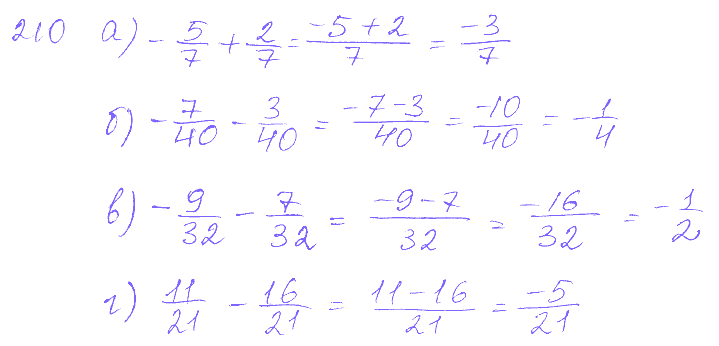 210 а) -5/7 + 2/7 = (-5+2)/7 = -3/7
б) -7/40 - 3/40 = (-7-3)/40 = -10/40 = -1/4
в) -9/32 - 7/32 = (-9-7)/32 = -16/32 = -1/2
г) 11/21 - 16/21 = (11-16)/21 = -5/21